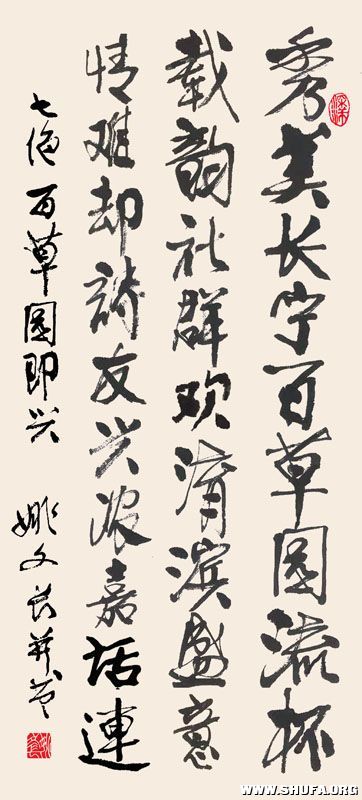 秀美长宁百草园流杯
载韵社群欢淯滨盛意
情难却诗友兴浓嘉话連
七绝百草园即兴 姚文长并书
WWW.SHUFA.ORG